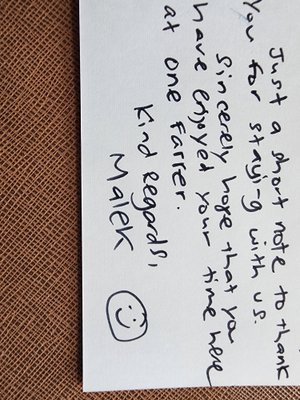 Just a short note to thank
you for staying with us.
Sincerely hope that you
have enjoyed your time here
at one Farrer.
Kind Regards,
Malek